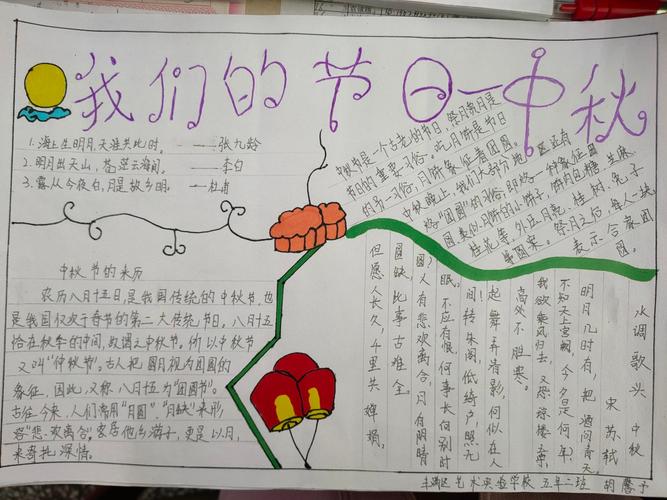 我们的节日—中秋
1.海上生明月,天涯共此时。——张九龄
2.明月出天山,苍茫云海间。——李白
3.露从今夜白,月是故乡明。—杜甫
中秋节是一个古老的节日,祭月赏月是
节日的重要习俗。吃月饼是节日
的另一习俗,月饼象征着团圆。
中秋晚上,我们大部分地区还有
烙“团圆”的习俗,即烙一种象征团
圆类似月饼的小饼子,饼内包糖、芝麻、
桂花等,外压月亮、桂树、兔子
等图案。祭月之后,每人一块,
表示合家团
圆。
中秋节的来历
农历八月十五日,是我国传统的中秋节,也
是我国仅次于春节的第二大传统节日。八月十五
恰在秋季的中间,故谓之中秋节。所以中秋节
又叫“仲秋节”。古人把圆月视为团圆的
象征,因此,又称八月十五为“团圆节”。
古往今来,人们常用“月圆”、“月缺”来形
容“悲欢离合”。客居他乡游子,更是以月
来寄托深情。
水调歌头 中秋
宋 苏轼
明月几时有,把酒问青天。
不知天上宫阙,今夕是何年。
我欲乘风归去,又恐琼楼玉宇,
高处不胜寒。
起舞弄清影,何似在人
间!转朱阁,低绮户,照无
眠。不应有恨,何事长向别时
圆?人有悲欢离合,月有阴晴
圆缺,此事古难全。
但愿人长久,千里共婵娟。
丰满区艺术实验学校 五年二班 胡馨予